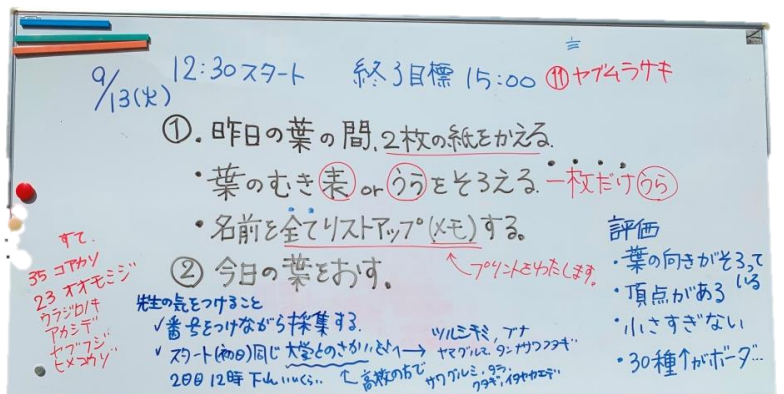 9/13(火) 12:30スタート 終了目標 15:00 ⑪ヤブムラサキ
①. 昨日の葉の間、2枚の紙をかえる.
・葉のむき 表 or うら をそろえる. 一枚だけうら
・名前を全てリストアップ(メモ)する。
プリントをわたします。
② 今日の葉をおす。
すて.
35 コアカソ
23 オオモミジ
ウラジロノキ
アカシデ
ヤブフジ
ヒメコウゾ
先生の気をつけること
✓番号をつけながら採集する.
✓スタート(初日)同じ 大学とのさかい →
2日目 12時 下山
←高校の方で
ブナ
ヤマグルミ, タンナサワフタギ
サワグルミ, タラ,
イタヤカエデ
評価
・葉の向きがそろっている
・頂点がある
・小さすぎない
・30種↑がボーダ…